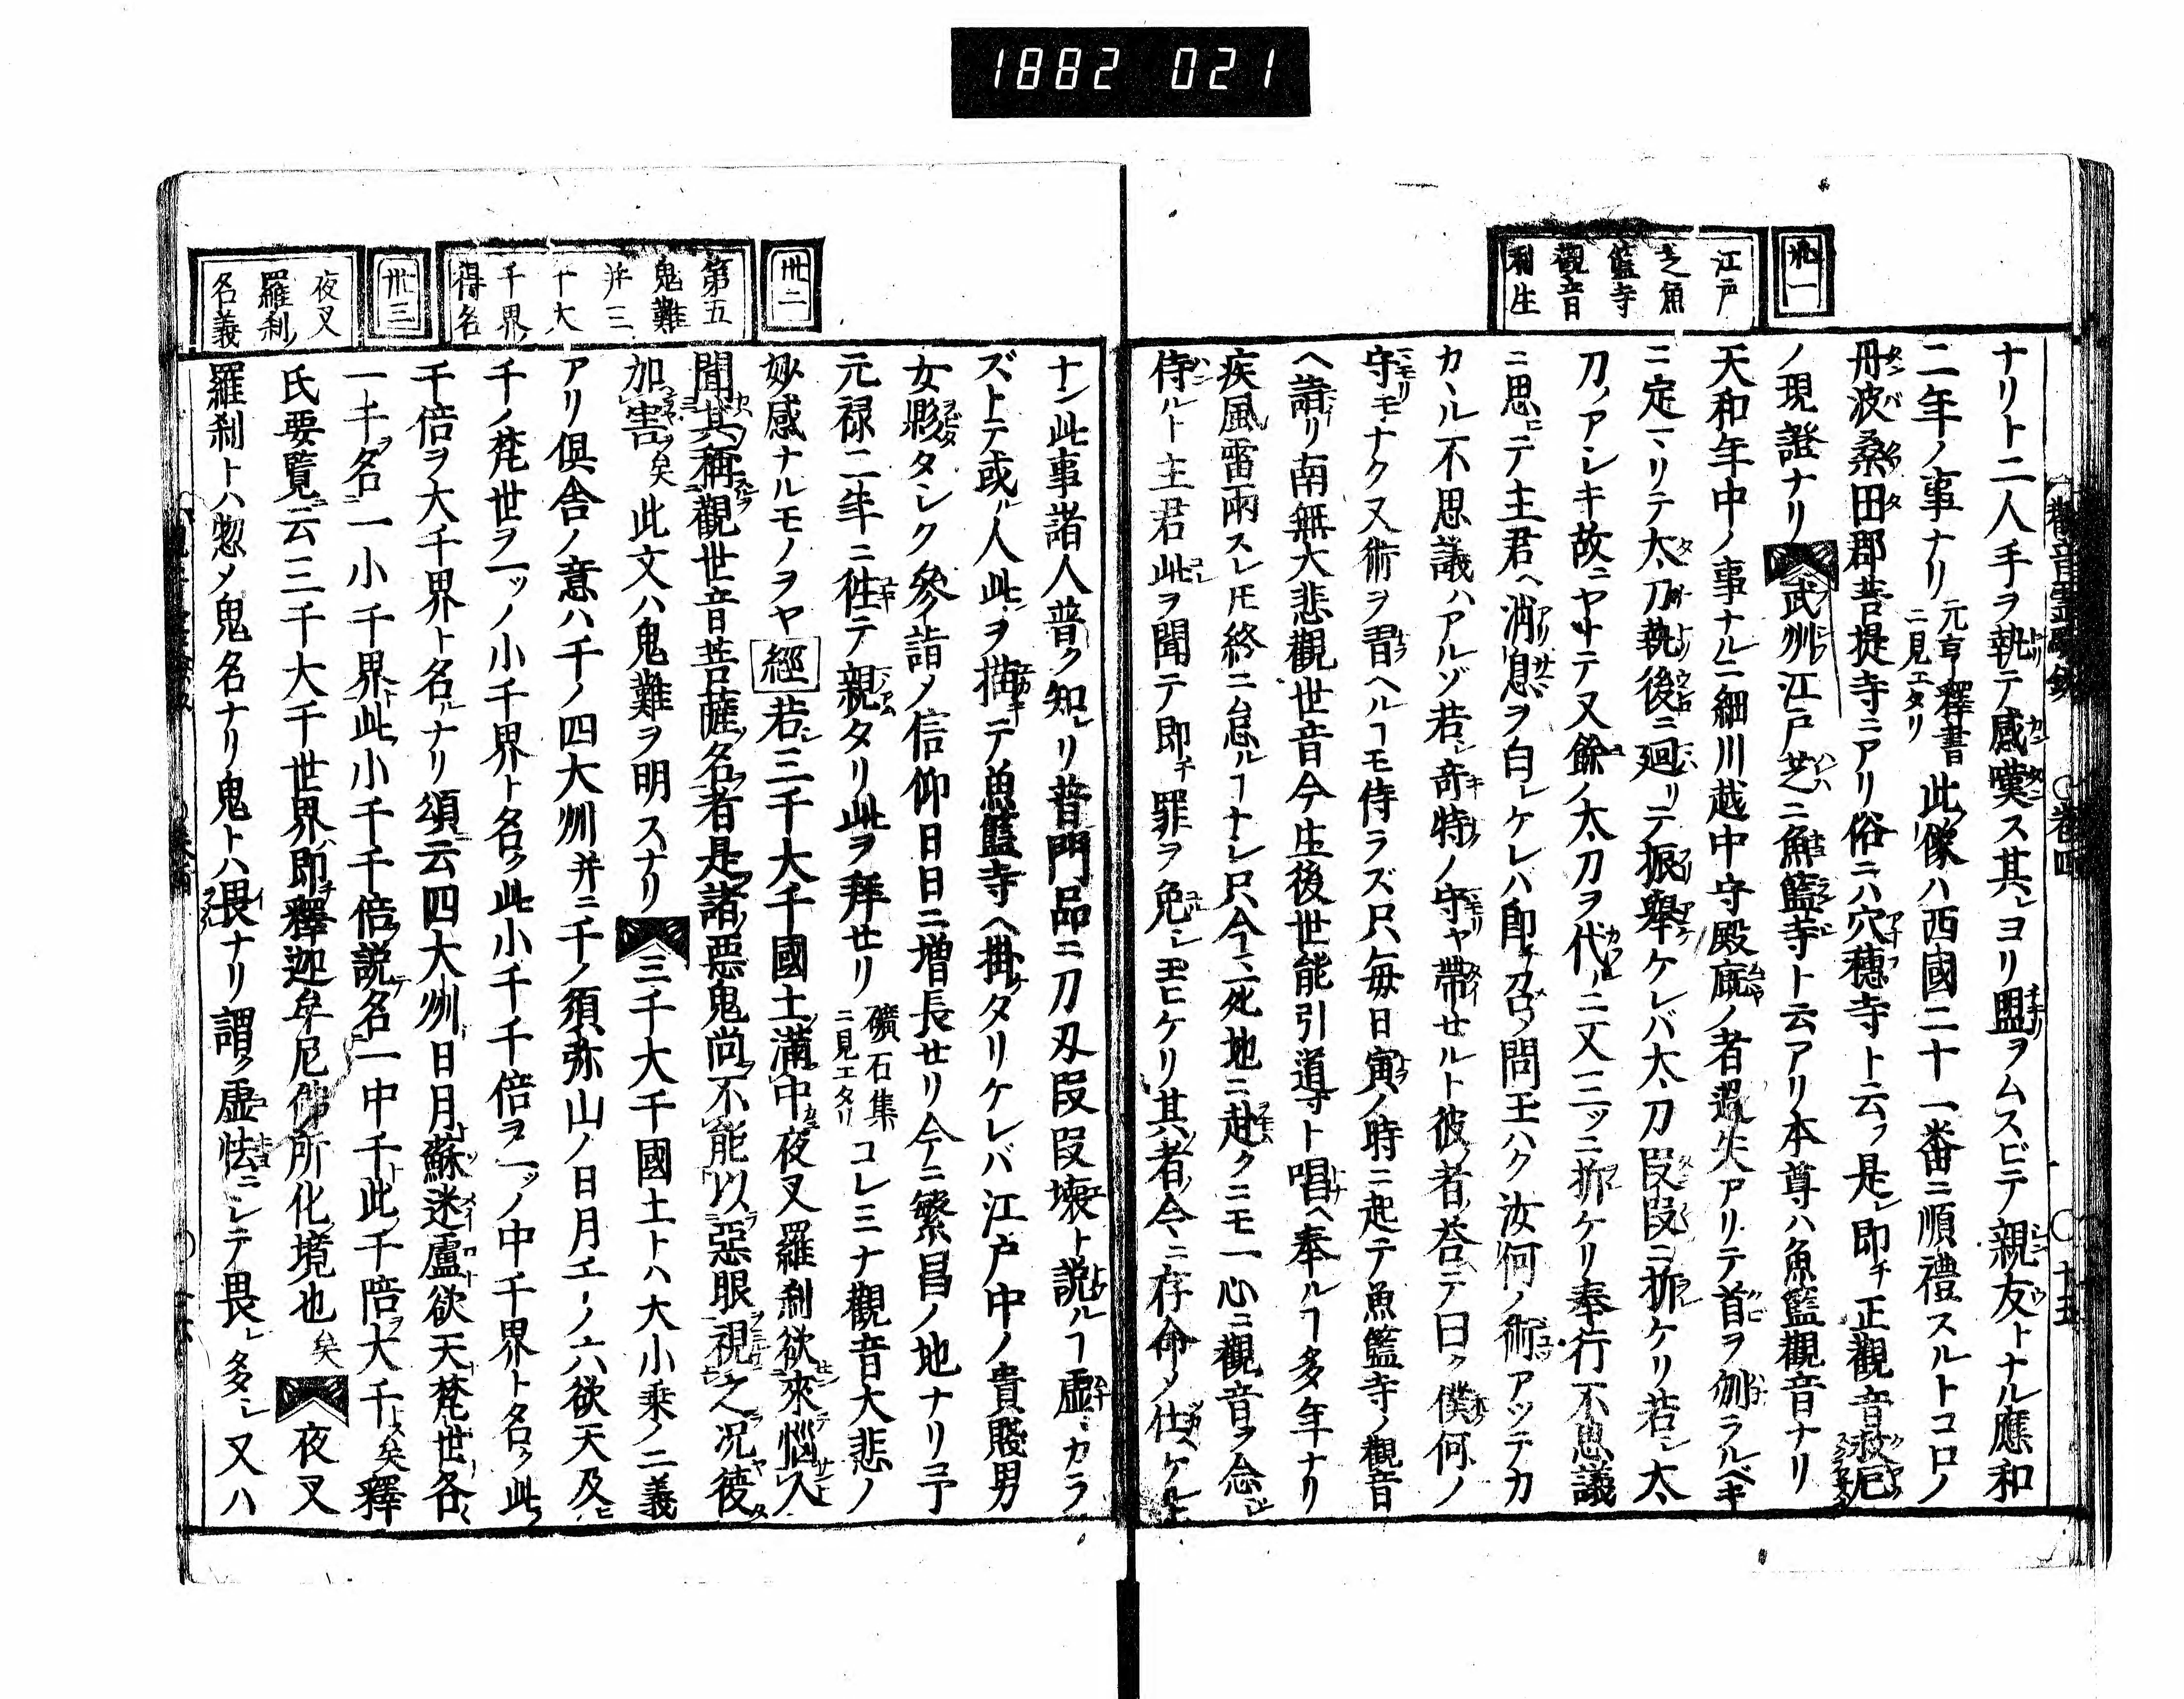 1882 021
卅一
江戸
芝魚
籃寺
觀音
利生
ナリト二人手ヲ執テ感嘆ス其ヨリ盟ヲムスビテ親友トナル應和
二年ノ事ナリ元亨釋書ニ見エタリ此像ハ西國二十一番ニ順禮スルトコロノ
丹波桑田郡菩提寺ニアリ俗ニハ穴穗寺ト云フ是レ即チ正觀音救厄
ノ現證ナリ 武州江戸芝ニ魚籃寺ト云アリ本尊ハ魚籃觀音ナリ
天和年中ノ事ナルニ細川越中守殿厩ノ者過失アリテ首ヲ刎ラルベキ
ニ定マリテ太刀執後ニ廻リテ振擧ケレバ太刀段段ニ折ケリ若シ太
刀ノアシキ故ニヤトテ又餘ノ太刀ヲ代ルニ又三ツニ折ケリ奉行不思議
ニ思ヒテ主君ヘ消息ヲ白シケレハ即チ召ク問玉ハク汝何ノ術アツテカ
カヽル不思議ハアルゾ若シ奇特ノ守ヤ帶セルト彼ノ者荅テ曰ク僕何ノ
守モナク又術ヲ習ヘルヿモ侍ラズ只毎日寅ノ時ニ起テ魚籃寺ノ觀音
ヘ詣リ南無大悲觀世音今生後世能引導ト唱ヘ奉ルヿ多年ナリ
疾風雷雨スレ𪜈終ニ怠ルヿナシ只今マ死地ニ赴クニモ一心ニ觀音ヲ念ジ
侍ルト主君此ヲ聞テ即チ罪ヲ免シ玉ヒケリ其ノ者今マニ存命メ仕ヘケル
卅二
第五
鬼難
并三
千大
千界
得名
卅三
夜叉
羅刹
名義
ナン此事諸人普ク知レリ普門品ニ刀刄段段壞ト説ルヿ虚シカラ
ズトテ或ル人此ヲ描テ魚籃寺ヘ掛タリケレバ江戸中ノ貴賤男
女夥タシク參イ詣ノ信仰日日ニ増長セリ今ニ繁昌ノ地ナリ予
元禄二年ニ徃テ親タリ此ヲ拜セリ礦石集ニ見エタリコレミナ觀音大悲ノ
妙感ナルモノヲヤ 經 若シ三千大千國土滿中夜叉羅刹欲來惱人
聞其稱觀世音菩薩名者是諸惡鬼尚不能以惡眼視之况復
加害矣 此文ハ鬼難ヲ明スナリ 三千大千國土トハ大小乘ノ二義
アリ倶舎ノ意ハ千ノ四大洲并ニ千ノ須弥山ノ日月エーノ六欲天及ヒ
千ノ梵世ヲ一ツノ小千界ト名ク此小千千倍ヲ一ツノ中千界ト名ク此
千倍ヲ大千界ト名ルナリ頌云四大洲日月蘇迷盧欲天梵世各
一千名一小千界此小千千倍説名一中千此千陪大千矣釋
氏要覧云三千大千世界即釋迦牟尼佛所化境也矣 夜叉
羅刹トハ惣ノ鬼名ナリ鬼トハ畏ナリ謂ク虚怯ニシテ畏レ多シ又ハ